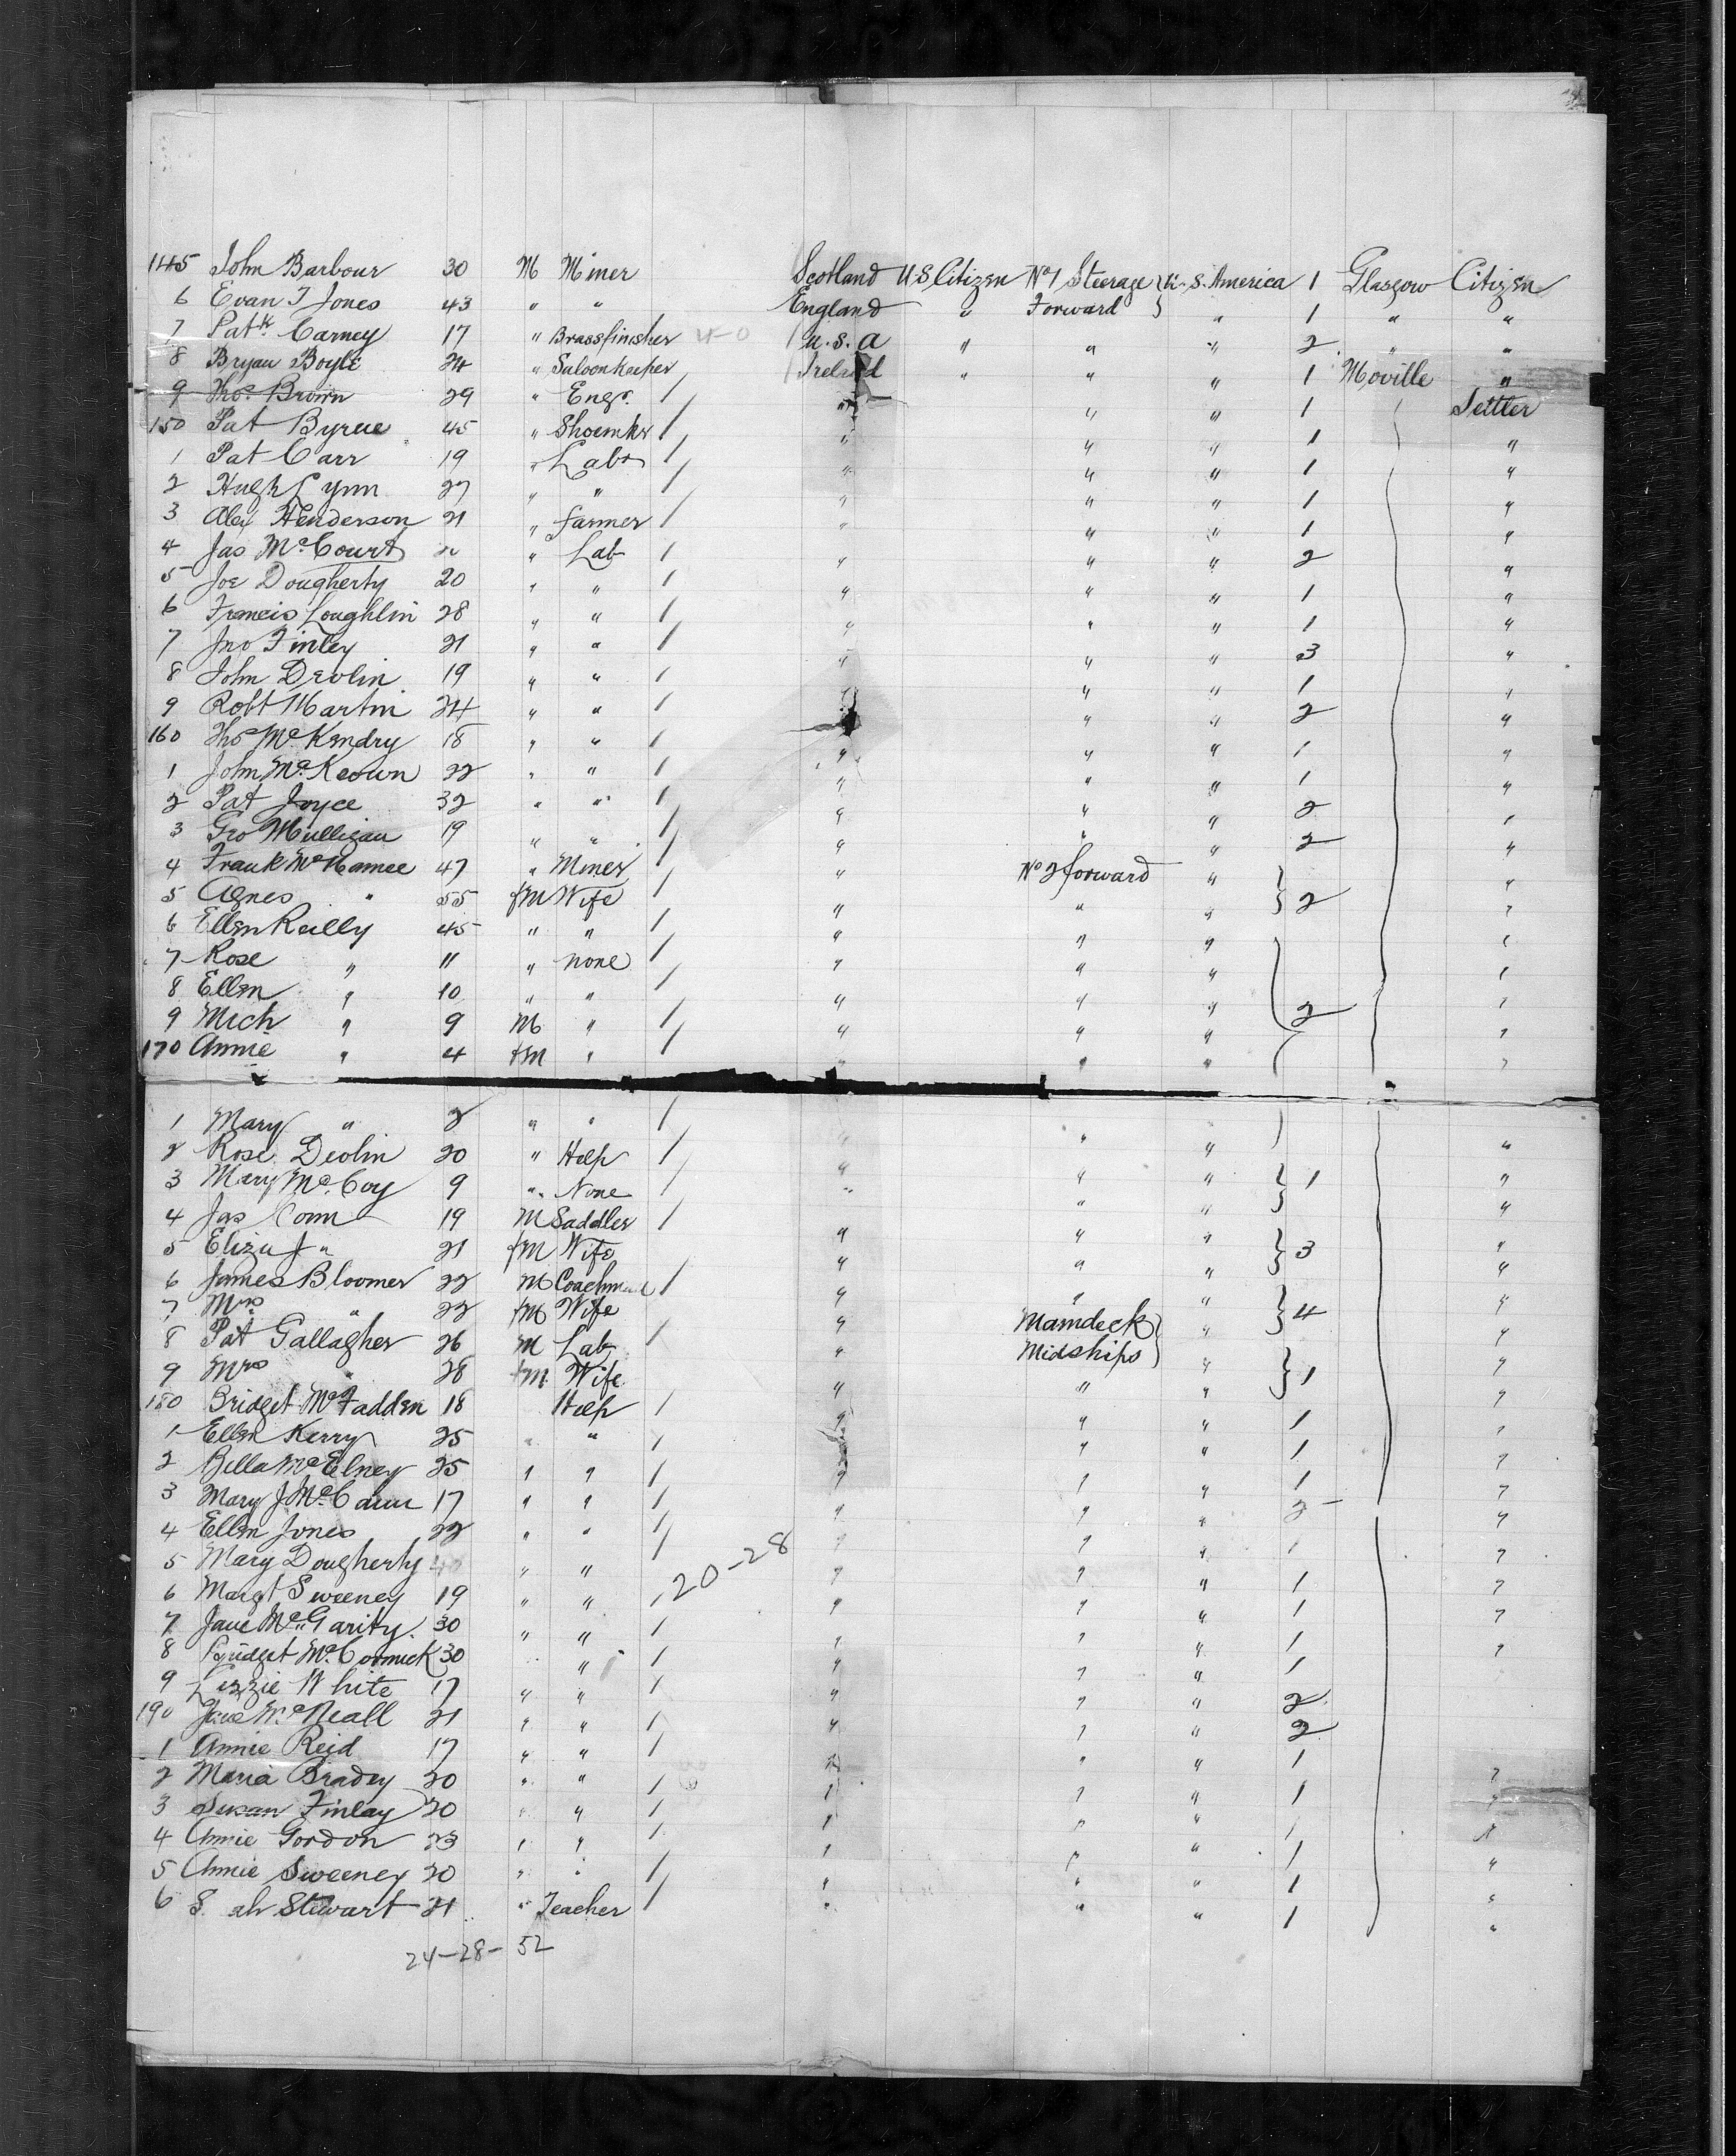 145 John Barbour 30 M Miner Scotland U.S Citizen No 1 Steerage } U.S. America 1 Glasgow Citizen
6 Evan T Jones 43 " " England " Forward } " 1 " "
7 Patk Carney 17 " Brassfinisher 4-0 U.S.A " " " 2 " "
8 Bryan Boyle 24 " Saloon Keeper Ireland " " " 1 Moville "
9 Thos Brown 29 " Engr. / " " " 1 Settler
150 Pat Byrne 45 " Shoemkr / " " " 1 "
1 Pat Carr 19 " Labr / " " " 1 "
2 Hugh Lynn 27 " " / " " " 1 "
3 Alex Henderson 21 " farmer / " " " 1 "
4 Jas McCourt " Lab / " " " 2 "
5 Joe Dougherty 20 " " / " " " 1 "
6 Francis Loughlin 28 " " / " " " 1 "
7 Jno Finley 21 " " / " " " 3 "
8 John Devlin 19 " " / " " " 1 "
9 Robt Martin 24 " " / " " 2 "
160 Thos McKendry 18 " " / " " " 1 "
1 John McKeown 22 " " / " " " 1 "
2 Pat Joyce 32 " " / " " " 2 "
3 Geo Mulligan 19 " " / " " " 2 "
4 Frank McNamee 47 " Miner / " No 2 forward " } "
5 Agnes " 55 fM Wife / " " " } 2 "
6 Ellen Reilly 45 " " / " " " "
7 Rose " 11 " none / " " " "
8 Ellen " 10 " " / " " " 2 "
9 Mich " 9 M " / " " " "
170 Annie " 4 fM " / " " " "
1 Mary " 2 " " / " " " "
2 Rose Devlin 20 " Help / " " " } 1 "
3 Mary McCoy 9 " None / " " " } "
4 Jas Conn 19 M Saddler / " " " } 3 "
5 Eliza J " 21 fM Wife " " " } "
6 James Bloomer 22 M Coachman / " " " } 4 "
7 Mrs " 22 fM Wife " Maindeck } " } "
8 Pat Gallagher 26 M Lab / " Midships } " } 1 "
9 Mrs " 28 fM Wife " " " } "
180 Bridget McFadden 18 Help / " " " 1 "
1 Ellen Kerry 25 " " / " " " 1 "
2 Bella McElney 25 " " / " " " 1 "
3 Mary J McCann 17 " " / " " " 2 "
4 Ellen Jones 22 " " / " " " 1 "
5 Mary Dougherty " " 20-28 " " " 1 "
6 Margt Sweeney 19 " " / " " " 1 "
7 Jane McGarity 30 " " / " " " 1 "
8 Bridget McCormick 30 " / " " " 1
9 Lizzie White 17 " " / " " " 2
190 Jane McNeall 21 " " / " " " 2
1 Annie Reid 17 " " / " " " 1 "
2 Maria Bradey 20 " " / " " " 1 "
3 Susan Finlay 20 " " / " " " 1 "
4 Annie Gordon 23 " " / " " " 1 "
5 Annie Sweeney 20 " " / " " " 1 "
6 S ah Stewart 21 " Teacher / " " " 1 "
24-28- 52